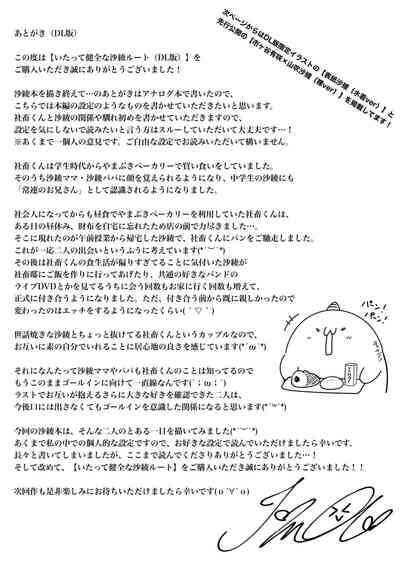 あとがき（DL版）
次ページからはDL版限定イラストの【表紙沙綾（水着ver）】と
先行公開の【市ヶ谷有咲×山吹沙綾（裸ver）】を掲載してます！
この度は【いたって健全な沙綾ルート（DL版）】を
ご購入いただき誠にありがとうございます！
沙綾本を描き終えて…のあとがきはアナログ本で書いたので、
こちらでは本編の設定のようなものを書かせていただきたいと思います。
社畜くんと沙綾の関係や馴れ初めを書かせていただきますので、
設定を気にしないで読みたいと言う方はスルーしていただいて大丈夫です…！
※あくまで一個人の意見です。ご自由な設定でお読みいただいて構いません。
社畜くんは学生時代からやまぶきベーカリーで買い食いをしていました。
そのうち沙綾ママ・沙綾パパに顔を覚えられるようになり、中学生の沙綾にも
「常連のお兄さん」として認識されるようになりました。
社会人になってからも昼食でやまぶきベーカリーを利用していた社畜くんは、
ある日の昼休み、財布を自宅に忘れたため店の前で力尽きました…。
そこに現れたのが午前授業から帰宅した沙綾で、社畜くんにパンをご馳走しました。
これが一応二人の出会いというふうに考えています(*´︶`*)
その後は社畜くんの食生活が偏りすぎてることに気付いた沙綾が
社畜邸にご飯を作りに行ってあげたり、共通の好きなバンドの
ライブDVDとかを見てるうちに会う回数もお家に行く回数も増えて、
正式に付き合うようになりました。ただ、付き合う前から既に親しかったので
変わったのはエッチをするようになったくらい( ´ ▽ ` )
世話焼きな沙綾とちょっと抜けてる社畜くんというカップルなので、
お互いに素の自分でいれることに居心地の良さを感じています(*´ω`*)
それになんたって沙綾ママやパパも社畜くんのことは知ってるので
もうこのままゴールインに向けて一直線なんです(´；ω；`)
ラストでお互いが抱えるさらに大きな好きを確認できた二人は、
今後口には出さなくてもゴールインを意識した関係になると思います(*´︶`*)
今回の沙綾本は、そんな二人のとある一日を描いてみました(*´︶`*)
あくまで私の中での個人的な設定ですので、お好きな設定で読んでいただけましたら幸いです。
長々と書いてしまいましたが、ここまで読んでくださりありがとうございました…！
そして改めて、【いたって健全な沙綾ルート】をご購入いただき誠にありがとうございます！！
次回作も是非楽しみにお待ちいただけましたら幸いです(o´∀`o)
パン!
パン!